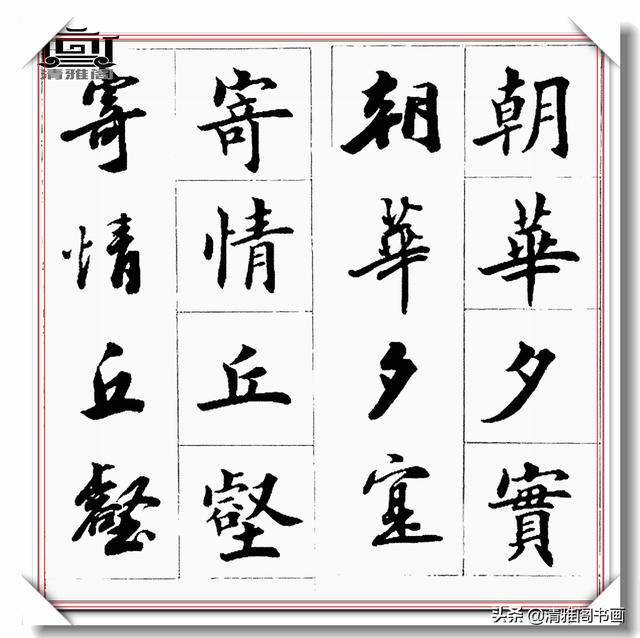 朝華夕實
朝華夕寔
寄情丘壑
寄情丘壑
清雅阁
头条 @清雅阁书画